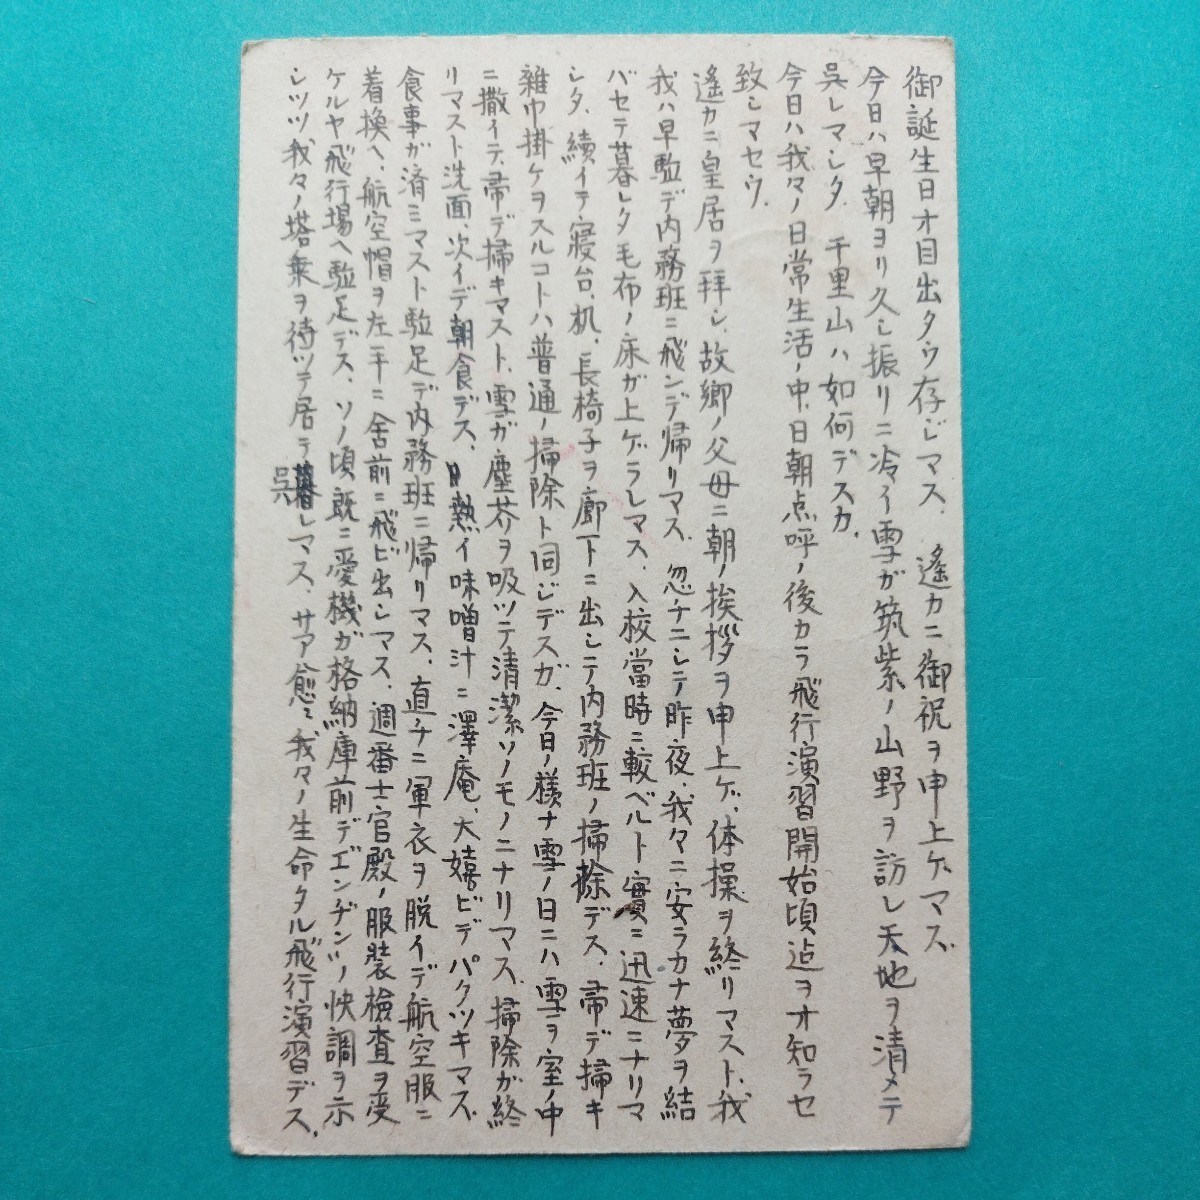 御誕生日オ目出タウ存ジマス、遙カニ御祝ヲ申上ゲマス、
今日ハ早朝ヨリ久シ振リニ冷イ雪ガ筑紫ノ山野ヲ訪レ天地ヲ清メテ
呉レマシタ、千里山ハ如何デスカ、
今日ハ我々ノ日常生活ノ中、日朝点呼ノ後カラ飛行演習開始頃迠ヲオ知ラセ
致シマセウ、
遙カニ皇居ヲ拝シ、故郷ノ父母ニ朝ノ挨拶ヲ申上ゲ、体操ヲ終リマスト、我
我ハ早駈デ内務班ニ飛ンデ帰リマス、忽チニシテ昨夜、我々ニ安ラカナ夢ヲ結
バセテ暮レタ毛布ノ床ガ上ゲラレマス、入校當時ニ較ベルト實ニ迅速ニナリマ
シタ、續イテ寝台、机、長椅子ヲ廊下ニ出シテ内務班ノ掃除デス、帚デ掃キ
雜巾掛ケヲスルコトハ普通ノ掃除ト同ジデスガ、今日ノ様ナ雪ノ日ニハ雪ヲ室ノ中
ニ撒イテ帚デ掃キマスト、雪ガ塵芥ヲ吸ツテ清潔ソノモノニナリマス、掃除ガ終
リマスト洗面、次イデ朝食デス、熱イ味噌汁ニ澤庵、大嬉ビデパクツキマス、
食事ガ済ミマスト駈足デ内務班ニ帰リマス、直チニ軍衣ヲ脱イデ航空服ニ
着換ヘ、航空帽ヲ左手ニ舎前ニ飛ビ出シマス、週番士官殿ノ服装檢査ヲ受
ケルヤ飛行場ヘ駈足デス、ソノ頃既ニ愛機ガ格納庫前デエンヂンノ快調ヲ示
シツツ我々ノ塔乗ヲ待ツテ居テ呉レマス、サア愈々我々ノ生命タル飛行演習デス、